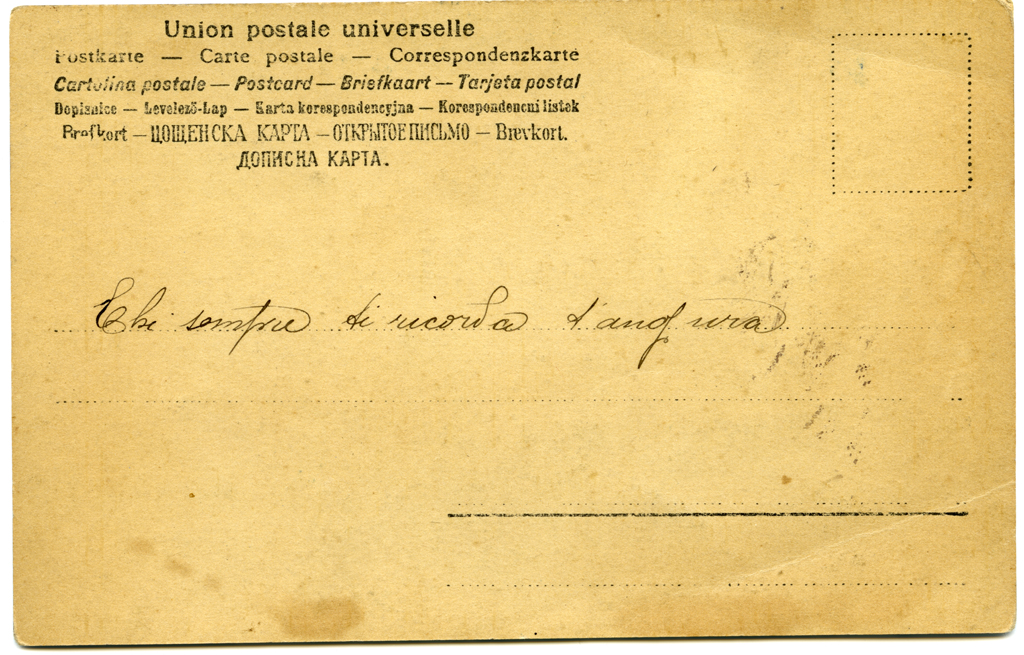 Union postale universelle
Postkarte — Carte postale — Correspondenzkarte
Cartolina postale — Postcard — Briefkaart — Tarjeta postal
Dopisnice — Levelező-Lap — Karta korespondencyjna — Korespondencni listek
Brefkort — ЦОЩЕНСКА КАРТА — ОТКРЫТОЕ ПИСЬМО — Brevkort.
ДОПИСНА КАРТА.
Chi sempre ti ricorda t'augura